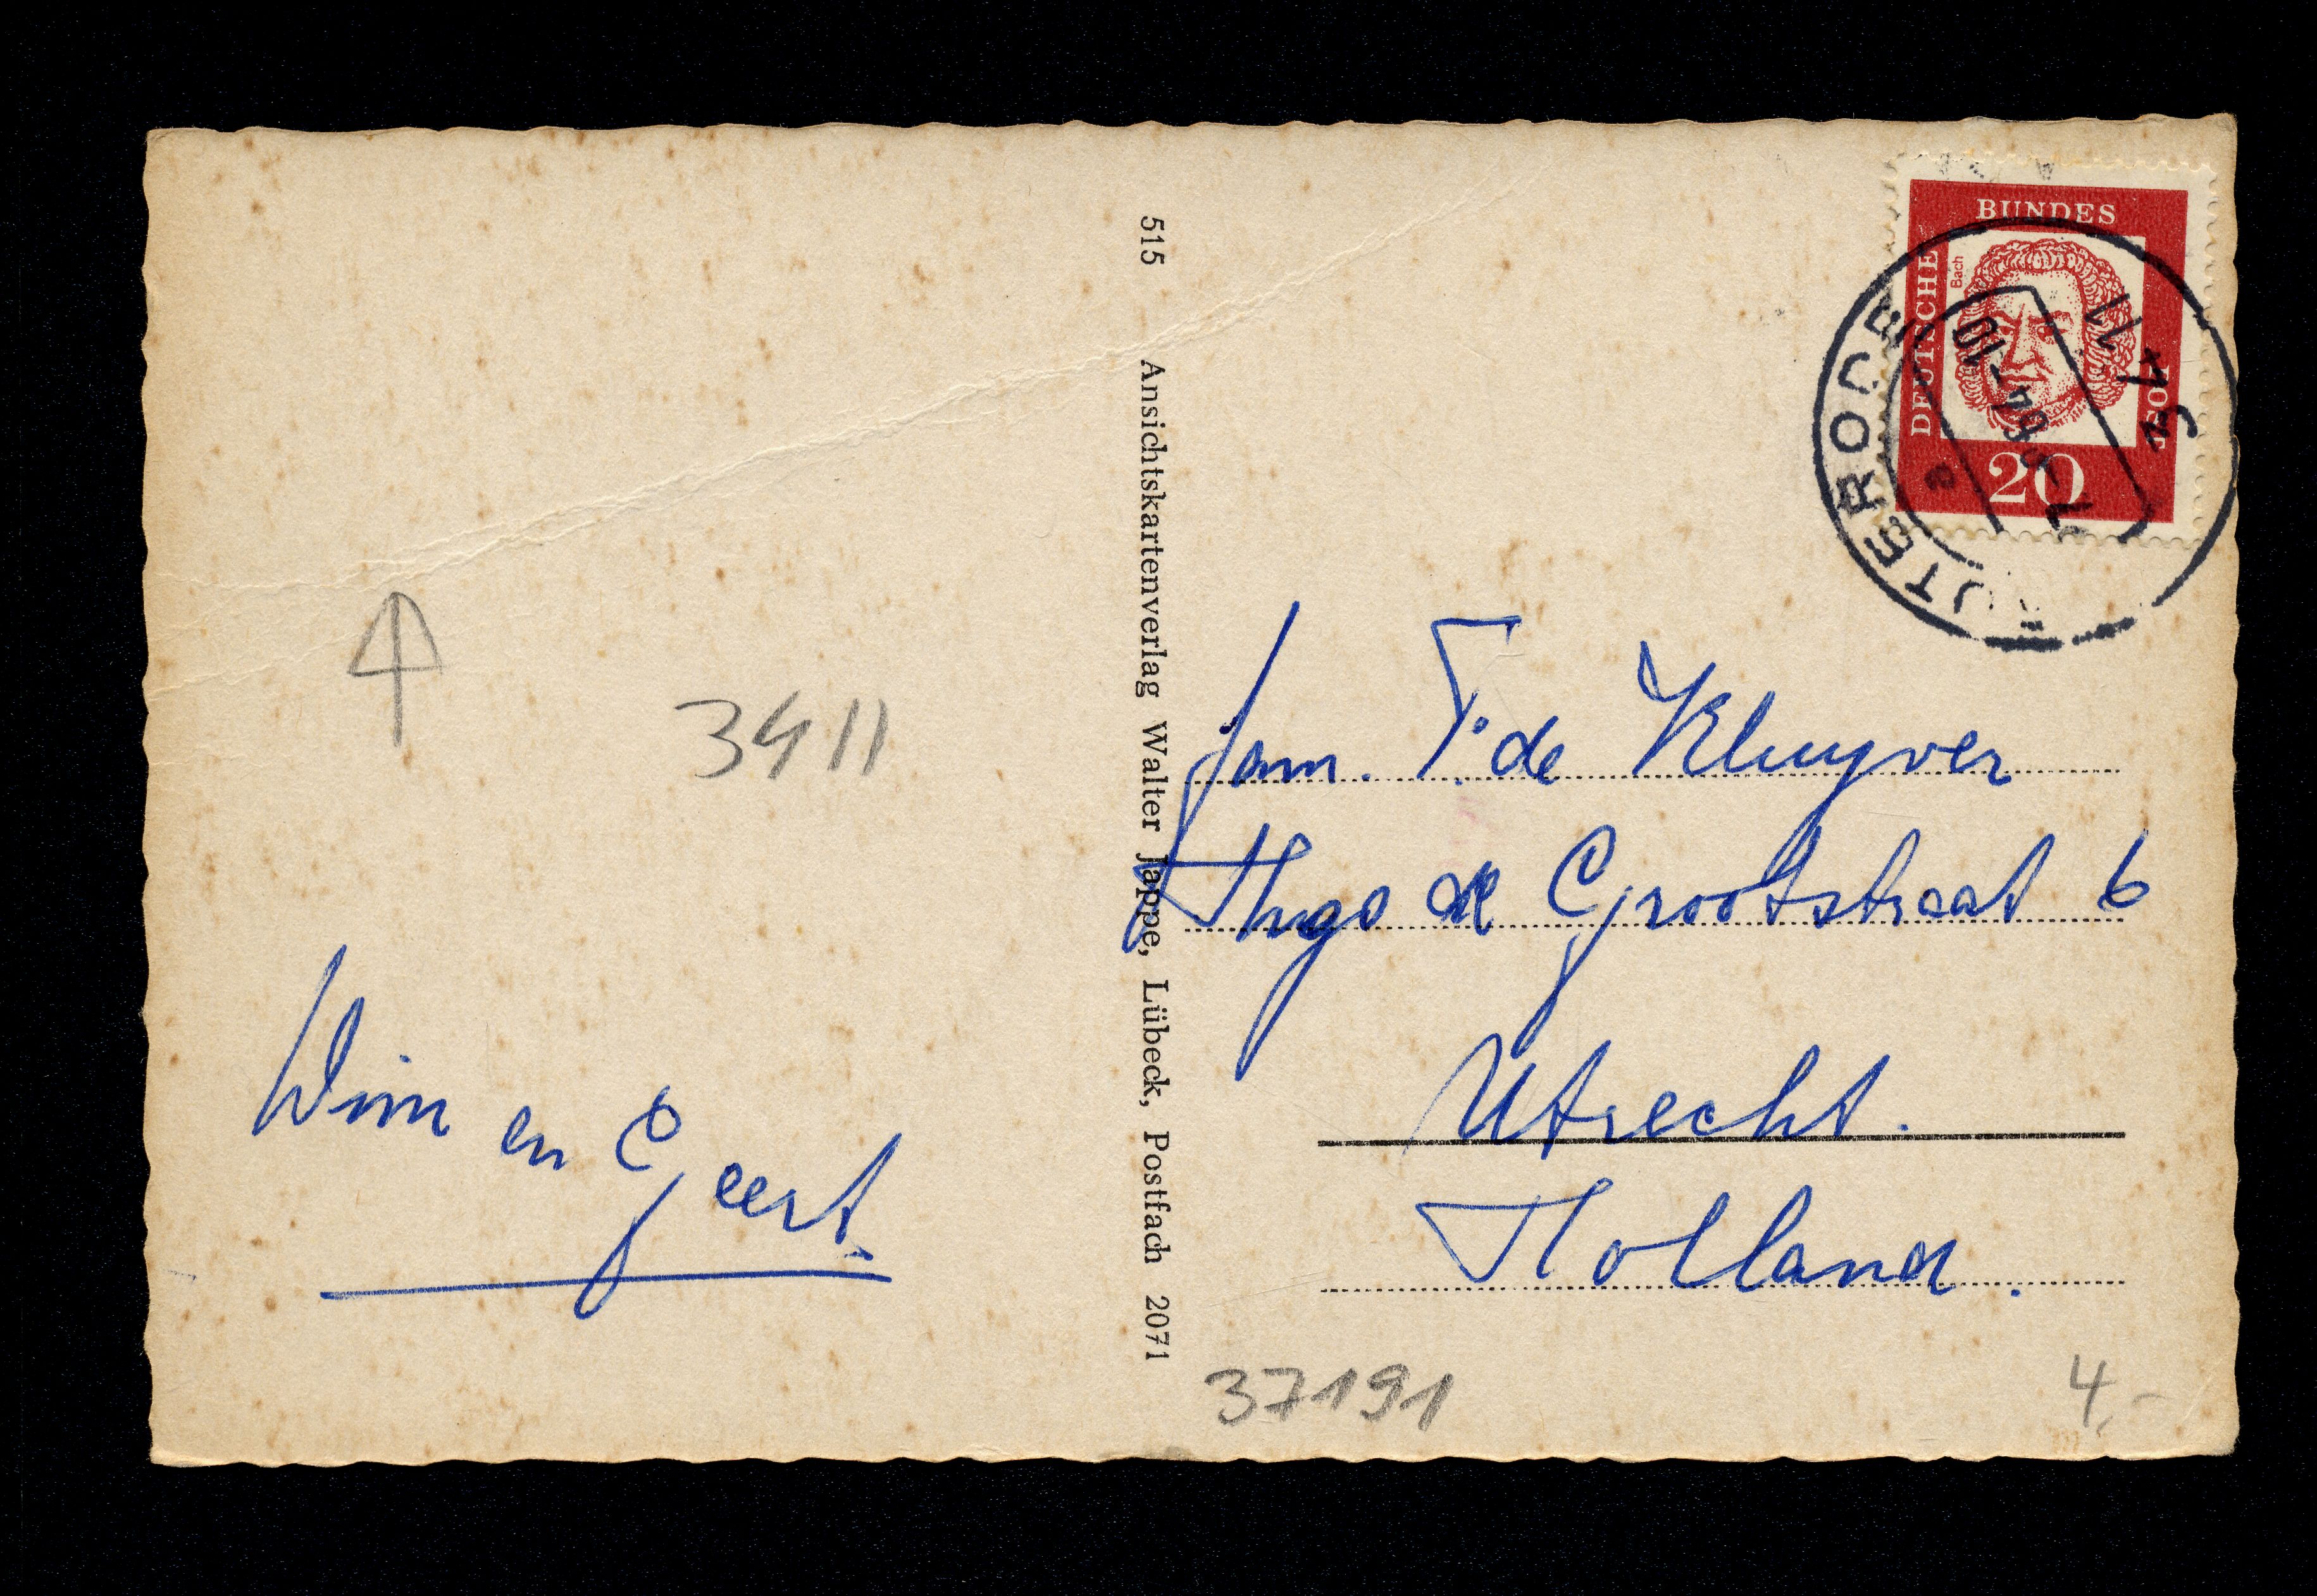 3411
Wim en Geert.
515 Ansichtskartenverlag Walter Jappe, Lübeck, Postfach 2071
DEUTSCHE BUNDES POST
Bach
20
3411
-9.64-10
a
fam. F. de Kluyver
Hugo de Grootstraat 6
Utrecht.
Holland.
37191
4,-